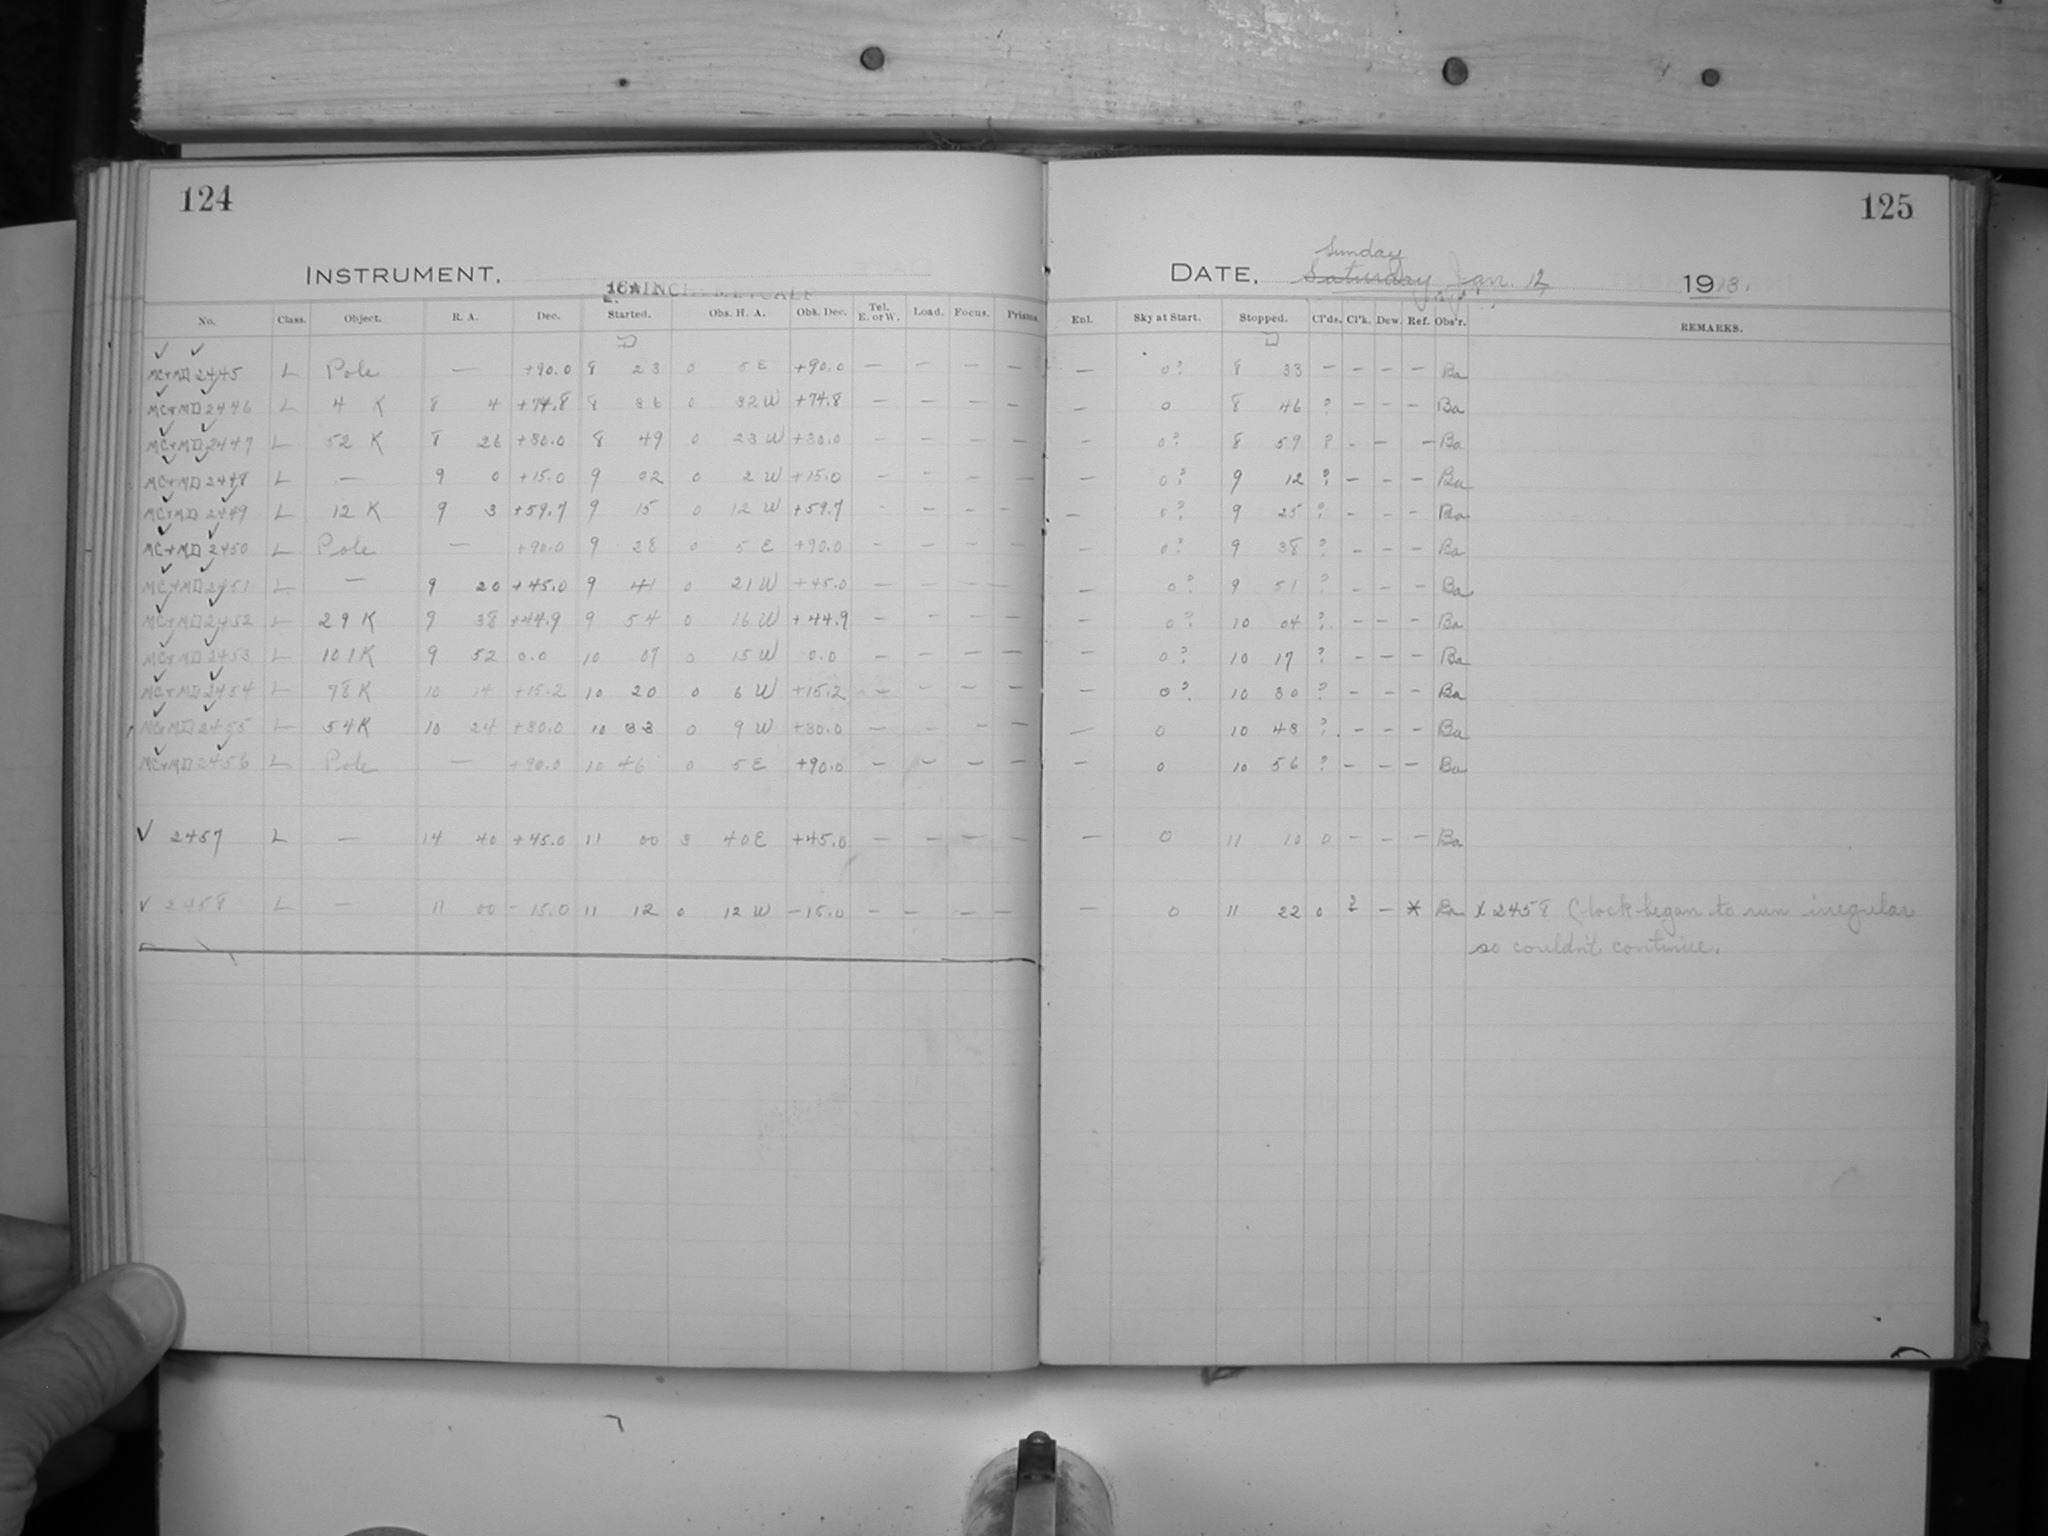 124
INSTRUMENT,
No. Class. Object. R. A. Dec. Started. Obs. H. A. Obs. Dec. Tel. E. or W. Load. Focus. Prisms.
MC+MD 2445 L Pole — +90.0 8 23 0 5 E +90.0 — — — —
MC+MD 2446 L 4 K 8 4 +74.8 8 36 0 32 W +74.8 — — — —
MC+MD 2447 L 52 K 8 26 +30.0 8 49 0 23 W +30.0 — — — —
MC+MD 2448 L — 9 0 +15.0 9 02 0 2 W +15.0 — — — —
MC+MD 2449 L 12 K 9 3 +59.7 9 15 0 12 W +59.7 — — — —
MC+MD 2450 L Pole — +90.0 9 28 0 5 E +90.0 — — — —
MC+MD 2451 L — 9 20 +45.0 9 41 0 21 W +45.0 — — — —
MC+MD 2452 L 29 K 9 38 +44.9 9 54 0 16 W +44.9 — — — —
MC+MD 2453 L 101 K 9 52 0.0 10 07 0 15 W 0.0 — — — —
MC+MD 2454 L 78 K 10 14 +15.2 10 20 0 6 W +15.2 — — — —
MC+MD 2455 L 54 K 10 24 +30.0 10 33 0 9 W +30.0 — — — —
MC+MD 2456 L Pole — +90.0 10 46 0 5 E +90.0 — — — —
✓ 2457 L — 14 40 +45.0 11 00 3 40 E +45.0 — — — —
✓ 2458 L — 11 00 -15.0 11 12 0 12 W -15.0 — — — —
125
Sunday
DATE, Saturday Jan. 12, 1913.
Enl. Sky at Start. Stopped. Cl'ds. Cl'k. Dew. Ref. Obs'r. REMARKS.
— 0? 8 33 — — — — Ba
— 0 8 46 ? — — — Ba
— 0? 8 59 ? — — — Ba
— 0? 9 12 ? — — — Ba
— 0? 9 25 ? — — — Ba
— 0? 9 38 ? — — — Ba
— 0? 9 51 ? — — — Ba
— 0? 10 04 ? — — — Ba
— 0? 10 17 ? — — — Ba
— 0? 10 30 ? — — — Ba
— 0 10 43 ? — — — Ba
— 0 10 56 ? — — — Ba
— 0 11 10 0 — — — Ba
— 0 11 22 0 ? — * Ba X 2458 Clock began to run irregular
so couldn't continue.